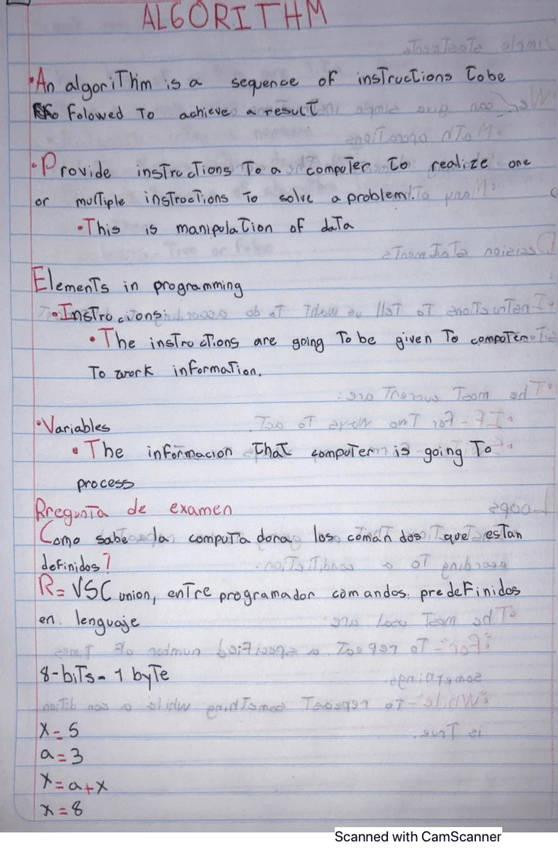 ALGORITHM
•An algoriThm is a sequence of insTructions Tobe
Folowed To achieve a resulT
•Provide insTructions To a compuTer To realize one
or mulTiple insTructions To solve a problem.
•This is manipulaTion of daTa
ElemenTs in programming
•InsTructions:
•The insTructions are going To be given To compuTer
To work information.
•Variables
•The informacion ThaT compuTer is going To
process
PregunTa de examen
Como sabe la compuTadora los comandos que esTan
definidos?
R= VSC union, enTre programador comandos. predefinidos
en lenguaje
8-biTs= 1 byTe
X=5
a=3
X=a+x
x=8
Scanned with CamScanner